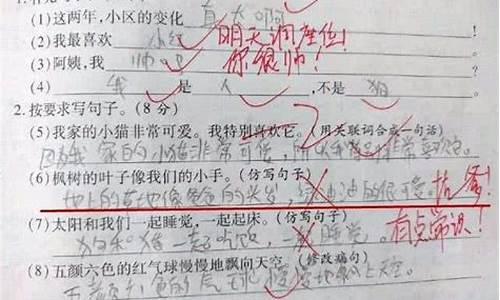 (1)这两年,小区的变化 真大啊
(2)我最喜欢 小红 明天调座位!
(3)阿姨,我 帅吧 你很帅!
(4) 我 是 人 ,不是 狗
2.按要求写句子。(8 分)
(5)我家的小猫非常可爱。我特别喜欢它。(用关联词合成一句话)
因为我家的小猫非常可爱,所以我特别非常喜欢它。
(6)枫树的叶子像我们的小手。(仿写句子)
地上的草地像爸爸的头发,绿油油的很可爱。
(7)太阳和我们一起睡觉,一起起床。(仿写句子)
一起吃饭,一起睡觉。 有点常识!
(8)五颜六色的红气球慢慢地飘向天空。(修改病句)
五颜六色的气球慢慢地飘上天空。